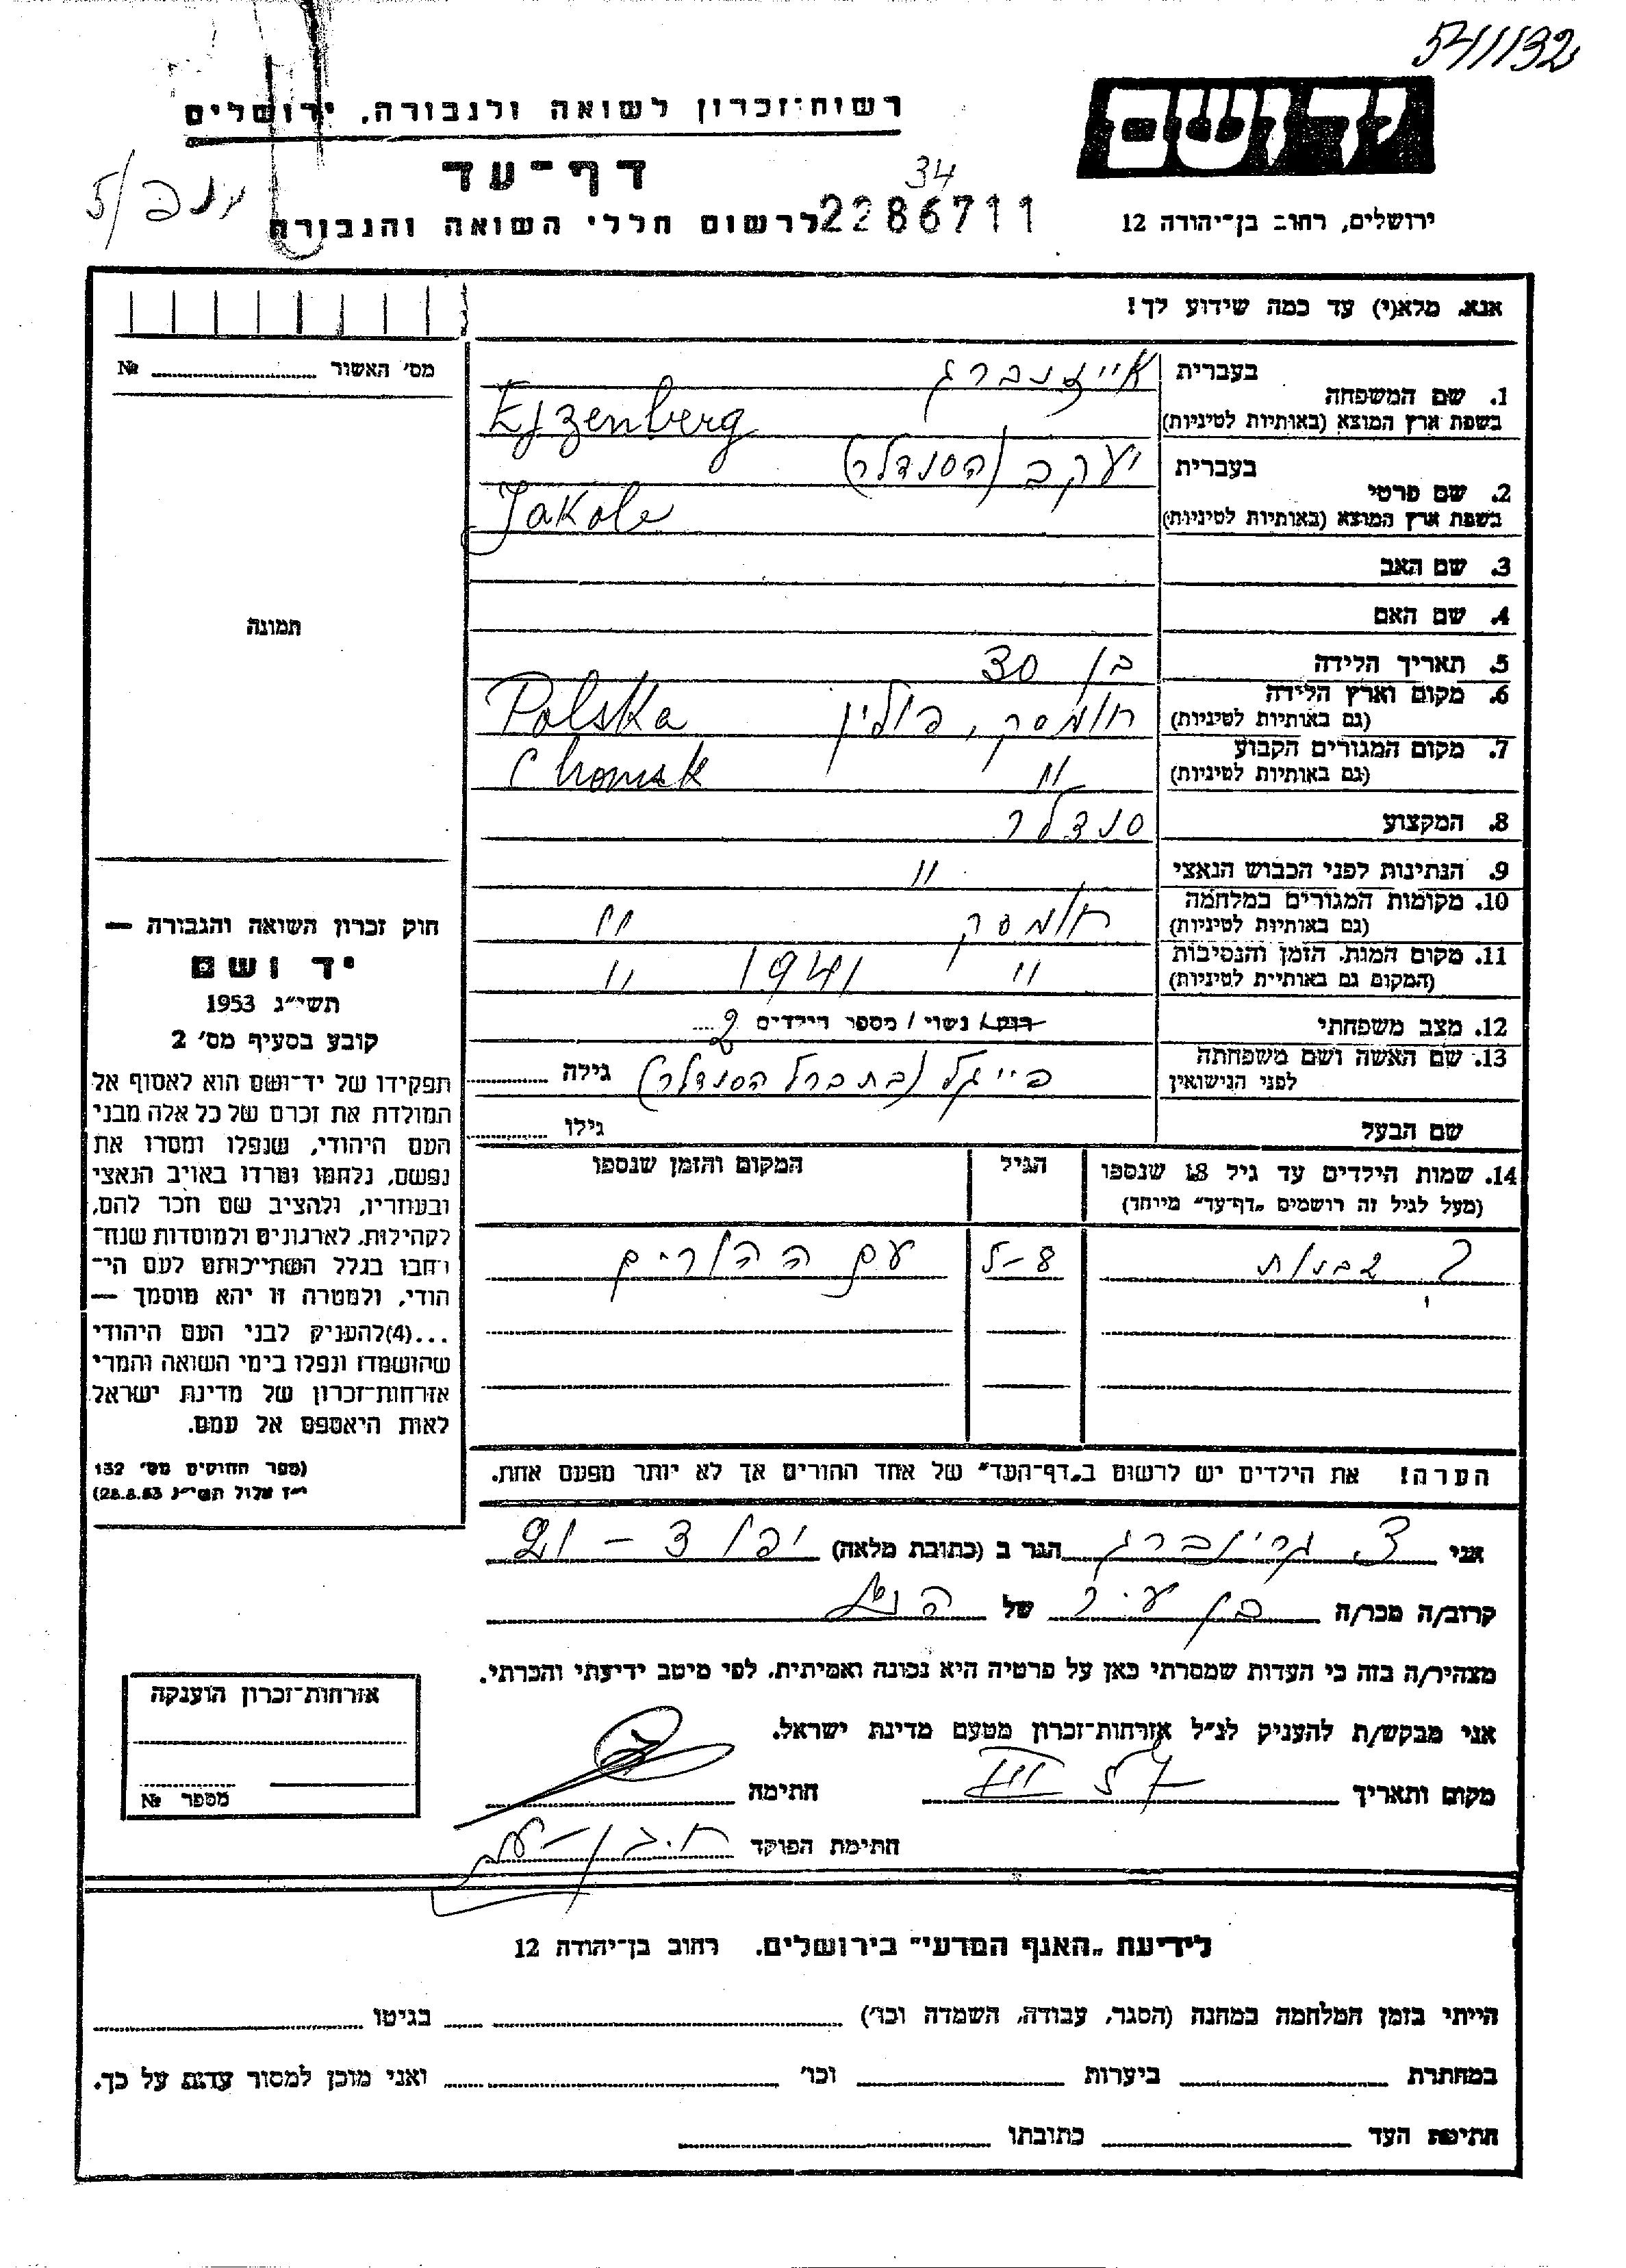 54/132
רשות־זכרון לשואה ולגבורה, ירושלים
יד ושם
דף־עד
34
2286711
לרשום חללי השואה והגבורה
ירושלים, רחוב בן־יהודה 12
אנא, מלא(י) עד כמה שידוע לך!
מס' האשור № 
1. שם המשפחה
בעברית אייזנברג
בשפת ארץ המוצא (באותיות לטיניות) Ejzenberg
2. שם פרטי
בעברית יעקב (הסנדלר)
בשפת ארץ המוצא (באותיות לטיניות) Jakob
3. שם האב
4. שם האם
תמונה
5. תאריך הלידה בן 30
6. מקום וארץ הלידה
(גם באותיות לטיניות) חומסק, פולין Polska
7. מקום המגורים הקבוע
(גם באותיות לטיניות) " Chomsk
8. המקצוע סנדלר
9. הנתינות לפני הכבוש הנאצי "
10. מקומות המגורים במלחמה
(גם באותיות לטיניות) חומסק "
11. מקום המות, הזמן והנסיבות
(המקום גם באותיות לטיניות) " 1941 "
12. מצב משפחתי רווק / נשוי / מספר הילדים 2
13. שם האשה ושם משפחתה
לפני הנישואין פייגל (בת ברל הסנדלר) גילה
שם הבעל גילו
14. שמות הילדים עד גיל 18 שנספו
(מעל לגיל זה רושמים "דף־עד" מיוחד)
הגיל
המקום והזמן שנספו
2 בנות 5-8 עם ההורים
הערה! את הילדים יש לרשום ב"דף־העד" של אחד ההורים אך לא יותר מפעם אחת.
חוק זכרון השואה והגבורה —
יד ושם
תשי"ג 1953
קובע בסעיף מס' 2
תפקידו של יד־ושם הוא לאסוף אל
המולדת את זכרם של כל אלה מבני
העם היהודי, שנפלו ומסרו את
נפשם, נלחמו ומרדו באויב הנאצי
ובעוזריו, ולהציב שם וזכר להם,
לקהילות, לארגונים ולמוסדות שנח־
רבו בגלל השתייכותם לעם הי־
הודי, ולמטרה זו יהא מוסמך —
...(4)להעניק לבני העם היהודי
שהושמדו ונפלו בימי השואה והמרי
אזרחות־זכרון של מדינת ישראל
לאות היאספם אל עמם.
(ספר החוקים מס' 132
י"ז אלול תשי"ג 28.8.53)
אני צ. גרינברג הגר ב (כתובת מלאה) יפו
קרוב/ה מכר/ה בן עיר של הנ"ל
מצהיר/ה בזה כי העדות שמסרתי כאן על פרטיה היא נכונה ואמיתית, לפי מיטב ידיעתי והכרתי.
אני מבקש/ת להעניק לנ"ל אזרחות־זכרון מטעם מדינת ישראל.
מקום ותאריך III 57 חתימה
חתימת הפוקד
אזרחות־זכרון הוענקה
מספר №
לידיעת "האגף המדעי" בירושלים. רחוב בן־יהודה 12
הייתי בזמן המלחמה במחנה (הסגר, עבודה, השמדה וכו') בגיטו
במחתרת ביערות וכו' ואני מוכן למסור עדות על כך.
חתימת העד כתובתו